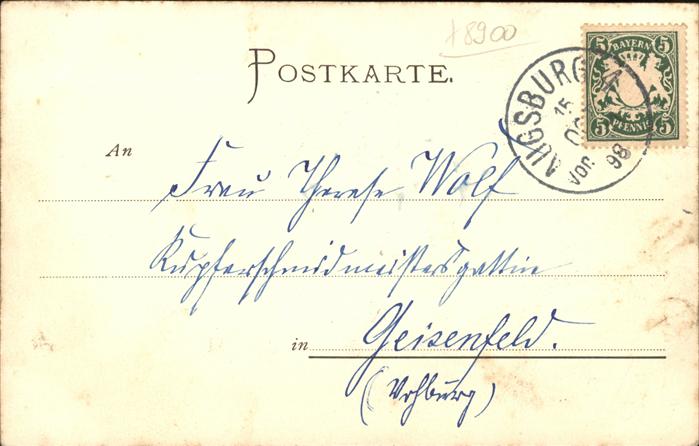 18900
POSTKARTE.
5 BAYERN 5
5 PFENNIG 5
AUGSBURG 4
15
Vor.
98
An
Frau Therese Wolf
Kupferschmidmeistersgattin
in Geisenfeld.
(Vohburg)